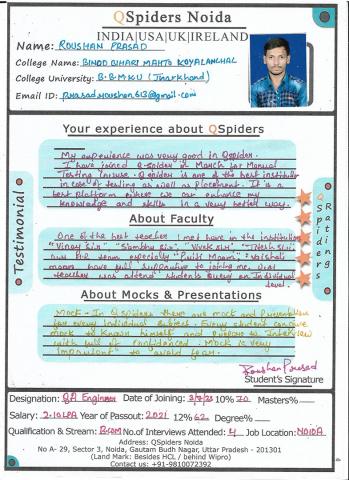 QSpiders Noida
INDIA|USA|UK|IRELAND
Name: ROUSHAN PRASAD
College Name: BINOD BIHARI MAHTO KOYALANCHAL
College University: B.B.M.K.U (Jharkhand)
Email ID: prasadroushan613@gmail.com
Your experience about QSpiders
My experience was very good in Qspider.
I have joined Q-spider at March for Manual
Testing Course. Qspider is one of the best institution
in case of testing as well as placement. It is a
best platform where we can enhance my
knowledge and skills in a very better way.
Testimonial
QSpiders
Ratings
About Faculty
One of the best teacher I met have in the institution
"Vinay Sir", "Sambhu Sir", "Vivek Sir",
and HR team especially
have full supportive to joining me. Our
teacher was attend students query on individual
level.
About Mocks & Presentations
Mock - In Qspiders there are mock and Presentation
for every individual subject. Every student
mock to known himself and prepare to interview
with full of confidenced. Mock is very
important to avoid fear.
Roushan Prasad
Student's Signature
Designation: QA Engineer Date of Joining: 10% 70 Masters%
Salary: 2.10LPA Year of Passout: 2021 12% 62 Degree%
Qualification & Stream: B.COM No.of Interviews Attended: 4 Job Location: NOIDA
Address: QSpiders Noida
No A- 29, Sector 3, Noida, Gautam Budh Nagar, Uttar Pradesh - 201301
(Land Mark: Besides HCL / behind Wipro)
Contact us: +91-9810072392